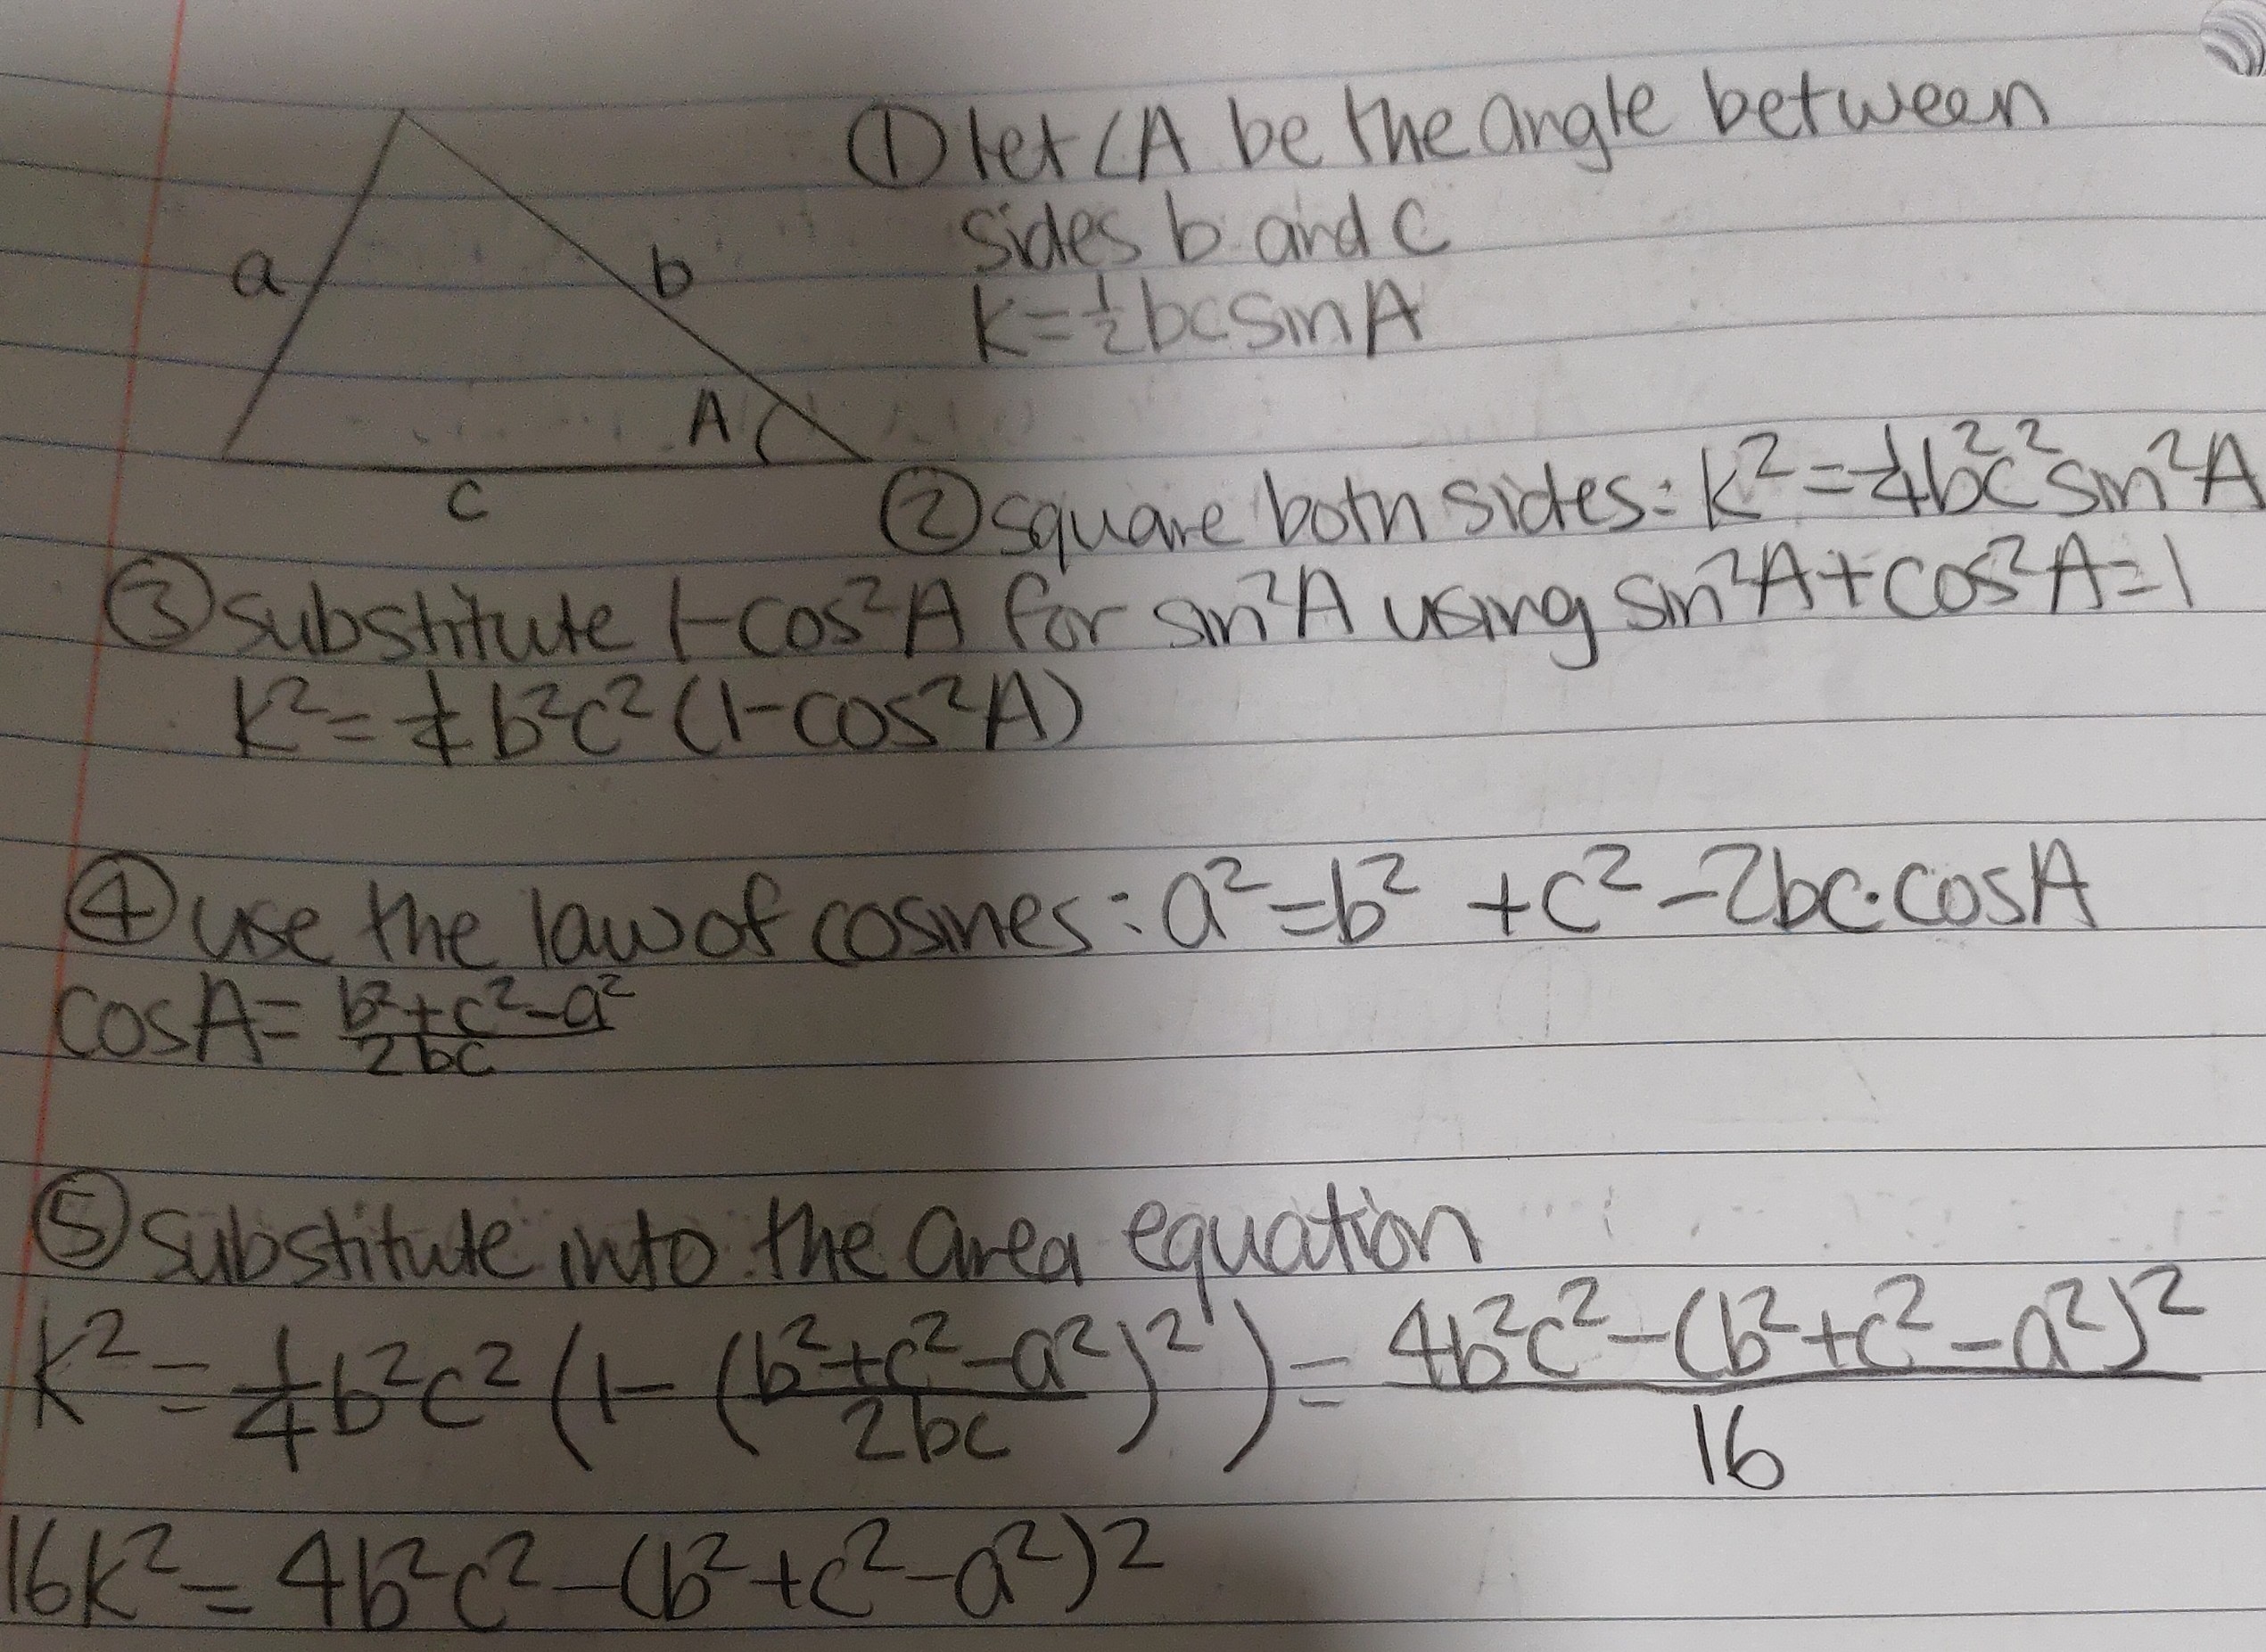 ① let ∠A be the angle between
sides b and c
K=½bcsinA
a
b
A
c
② square both sides: K²=¼b²c²sin²A
③ substitute 1-cos²A for sin²A using sin²A+cos²A=1
K²=¼b²c²(1-cos²A)
④ use the law of cosines: a²=b²+c²-2bc·cosA
cosA=(b²+c²-a²)/2bc
⑤ substitute into the area equation
K²=¼b²c²(1-((b²+c²-a²)/2bc)²)=(4b²c²-(b²+c²-a²)²)/16
16K²=4b²c²-(b²+c²-a²)²